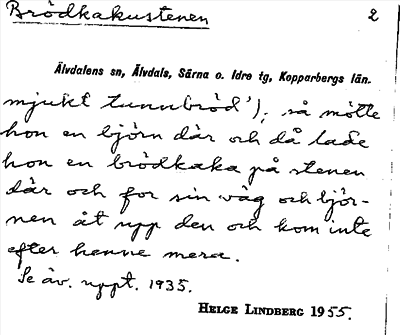 Brödkakustenen 2
Älvdalens sn, Älvdals, Särna o. Idre tg, Kopparbergs län.
mjukt tunnbröd'), så mötte
hon en björn där och då lade
hon en brödkaka på stenen
där och for sin väg och björ-
nen åt upp den och kom inte
efter henne mera.
Se äv. uppt. 1935.
HELGE LINDBERG 1955.